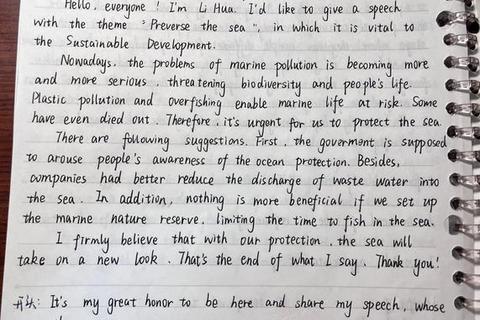 Hello, everyone! I'm Li Hua. I'd like to give a speech
with the theme "Preverse the sea", in which it is vital to
the Sustainable Development.
Nowadays, the problems of marine pollution is becoming more
and more serious, threatening biodiversity and people's life.
Plastic pollution and overfishing enable marine life at risk. Some
have even died out. Therefore, it's urgent for us to protect the sea.
There are following suggestions. First, the goverment is supposed
to arouse people's awareness of the ocean protection. Besides,
companies had better reduce the discharge of waste water into
the sea. In addition, nothing is more beneficial if we set up
the marine nature reserve, limiting the time to fish in the sea.
I firmly believe that with our protection, the sea will
take on a new look. That's the end of what I say. Thank you!
开头: It's my great honor to be here and share my speech, whose